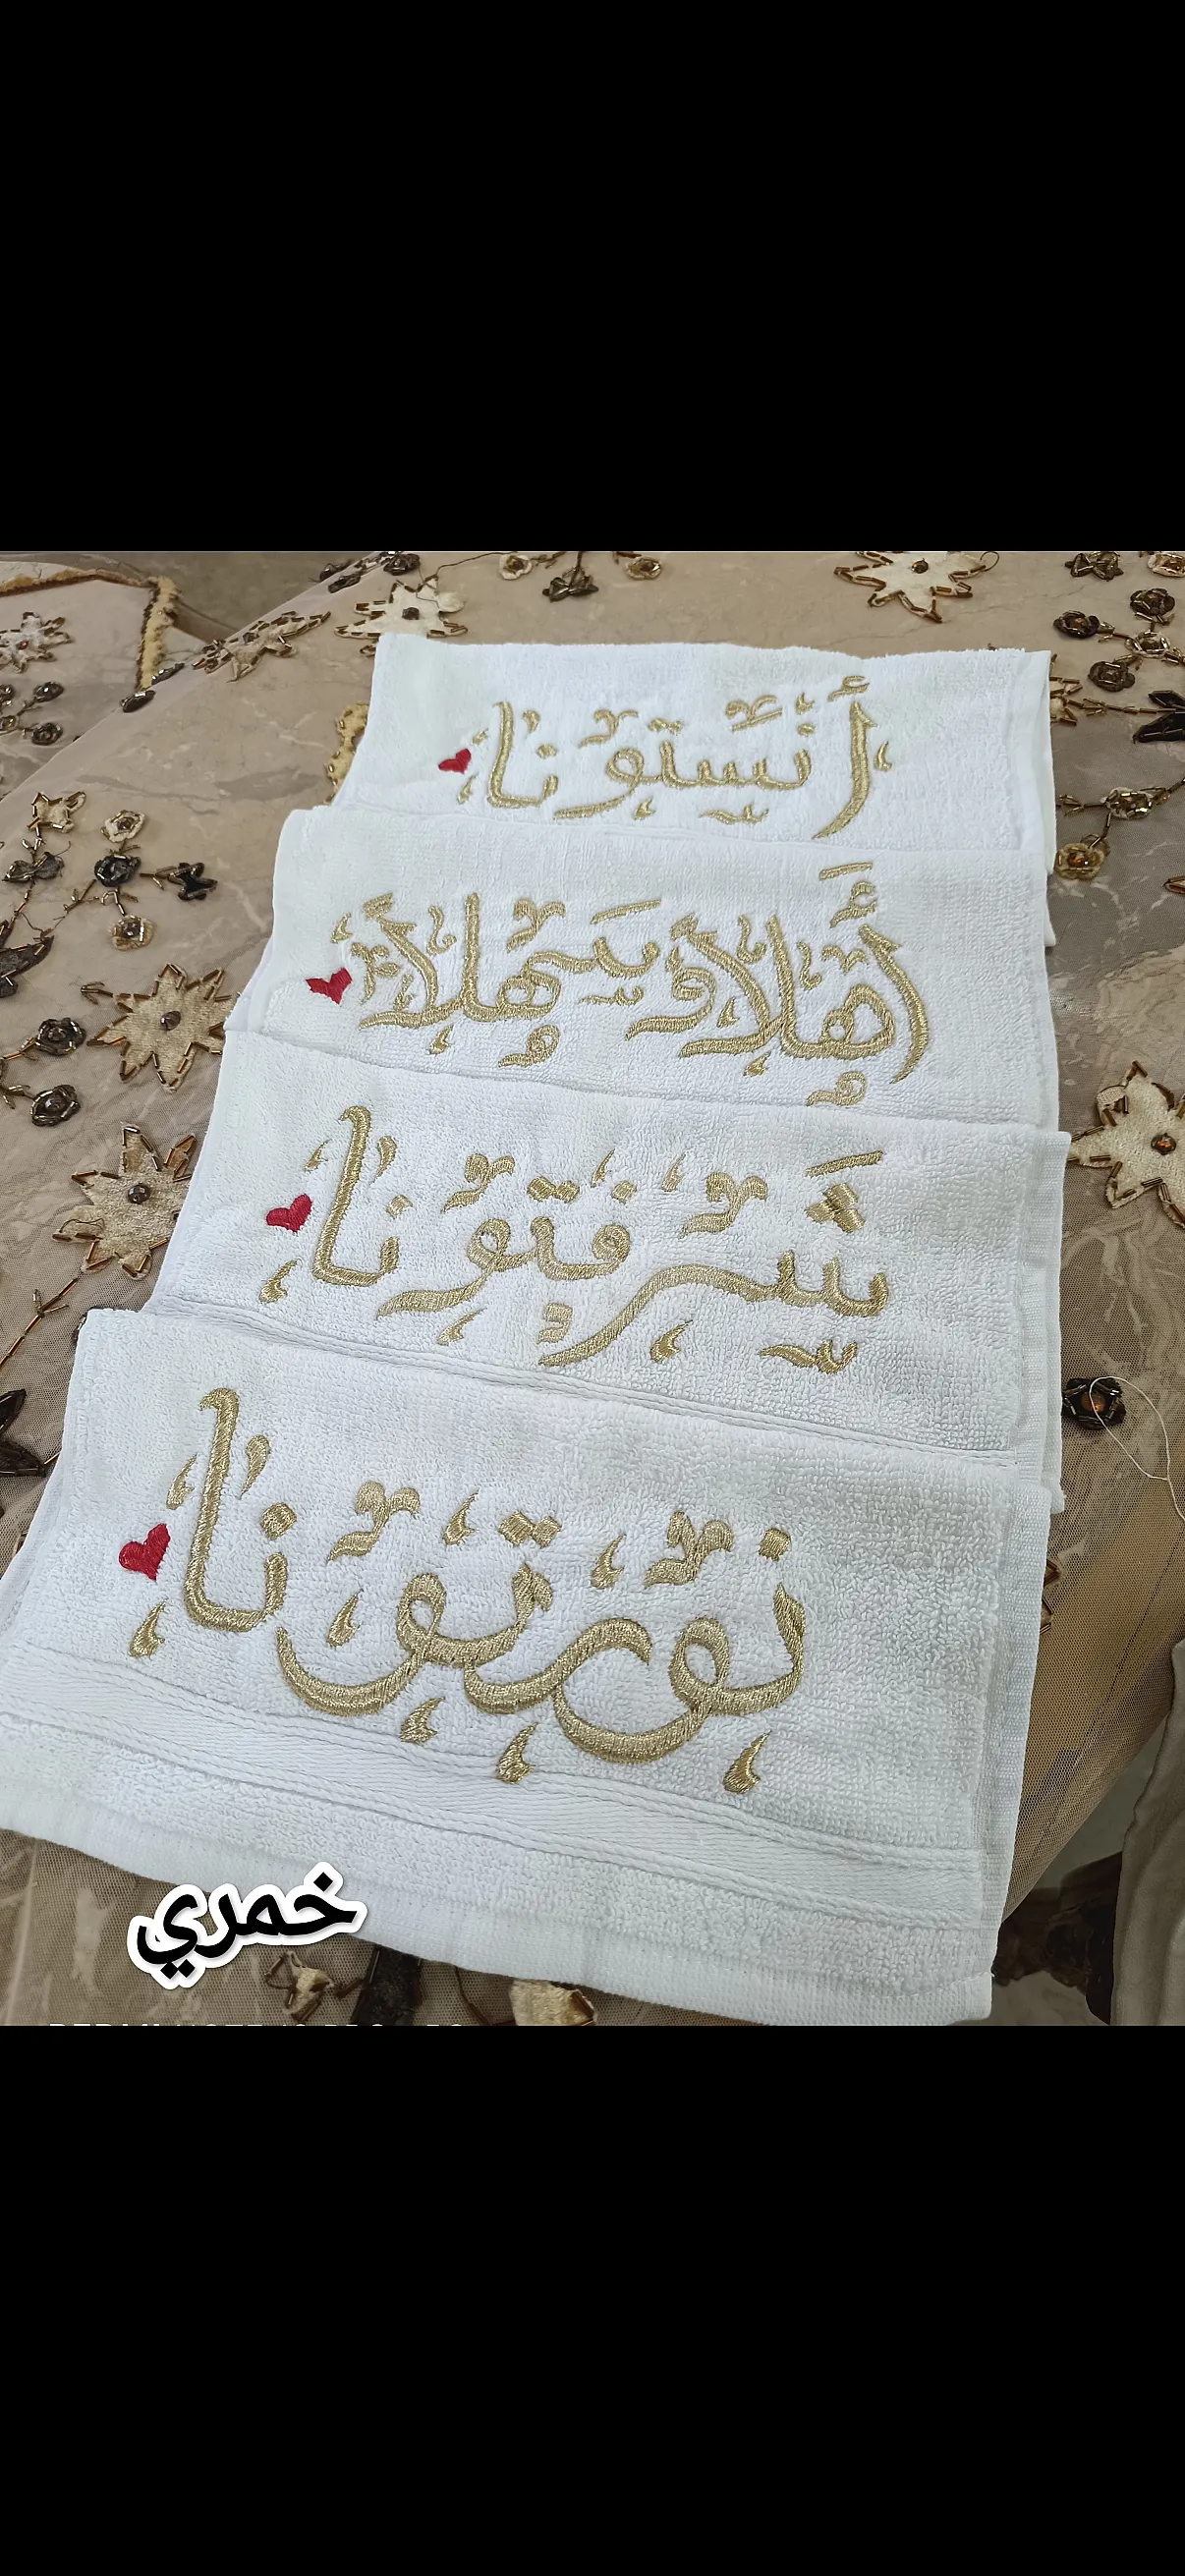 أنستونا
أهلا وسهلا
شرفتونا
نورتونا
خمري